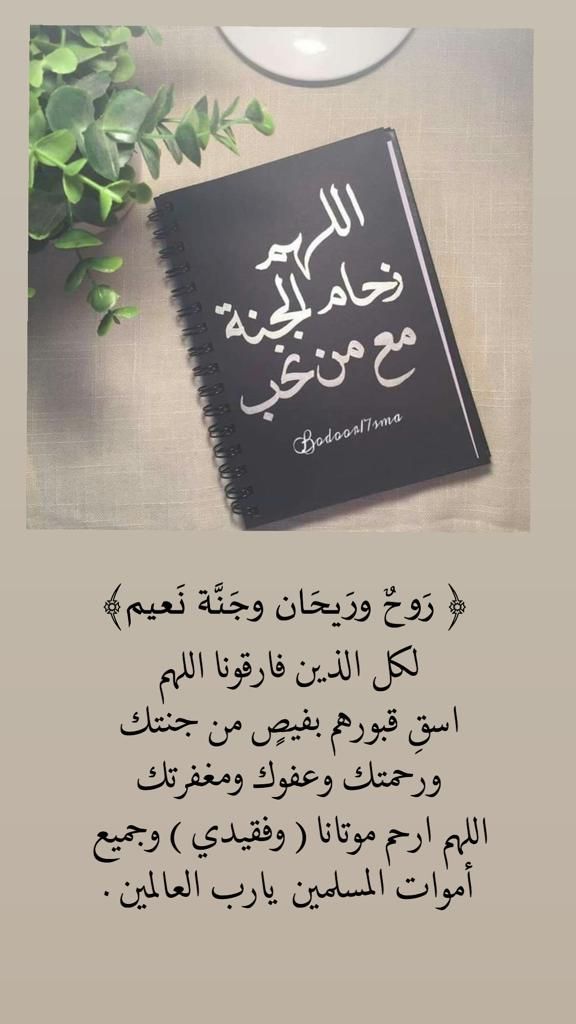 اللهم
زحام الجنة
مع من نحب
Bodoor17sma
﴿ رَوحٌ ورَيحَان وجَنَّة نَعيم ﴾
لكل الذين فارقونا اللهم
اسقِ قبورهم بفيصٍ من جنتك
ورحمتك وعفوك ومغفرتك
اللهم ارحم موتانا ( وفقيدي ) وجميع
أموات المسلمين يارب العالمين .